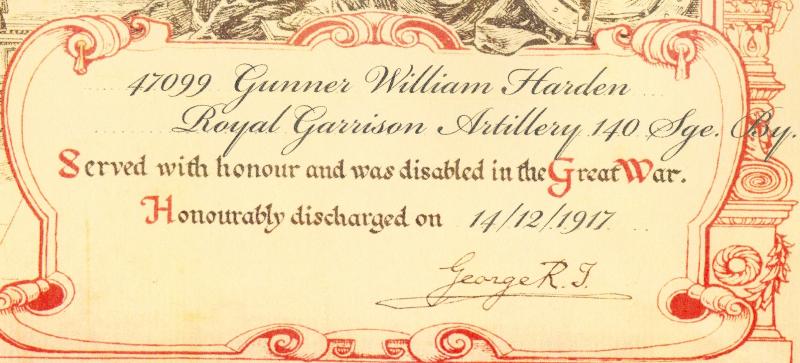 47099 Gunner William Harden
Royal Garrison Artillery 140 Sge. By.
Served with honour and was disabled in the Great War.
Honourably discharged on 14/12/1917
George R. I.